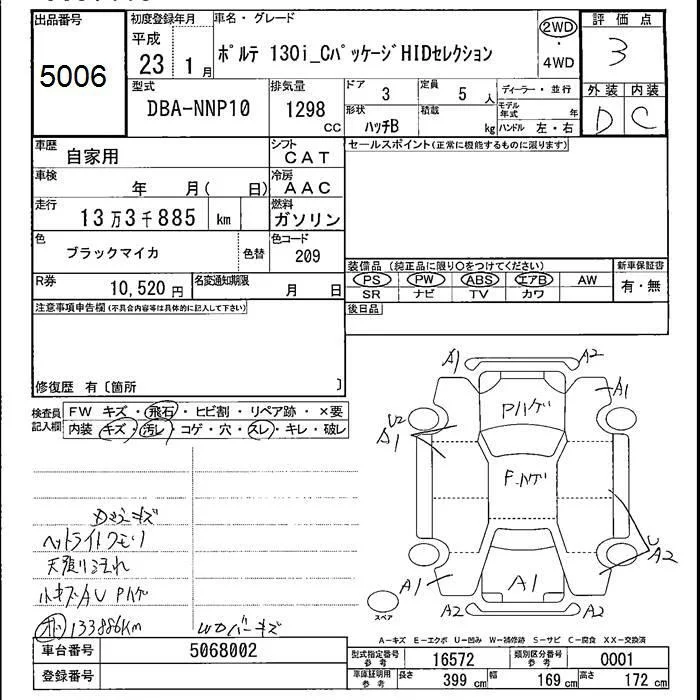 出品番号 初度登録年月 車名・グレード 評価点
5006 平成 23 1月 ポルテ 130i_CパッケージHIDセレクション 2WD ・ 4WD 3
型式 排気量 ドア 定員 ディーラー・並行 外装 内装
DBA-NNP10 1298 CC 3 5 人 モデル年式 年 D C
形状 積載
ハッチB kg ハンドル 左・右
車歴 自家用 シフト CAT セールスポイント(正常に機能するものに限ります)
車検 年 月( 日) 冷房 AAC
走行 13万3千885 km 燃料 ガソリン
色 ブラックマイカ 色替 色コード 209
装備品 (純正品に限り○をつけてください) 新車保証書
R券 10,520 円 名変通知期限 月 日 PS PW ABS エアB AW 有・無
SR ナビ TV カワ
注意事項申告欄(不具合内容等は具体的に記入して下さい) 後日品
修復歴 有〔箇所 〕
検査員記入欄 FW キズ・飛石・ヒビ割・リペア跡・×要
内装 キズ・汚レ・コゲ・穴・スレ・キレ・破レ
A1 A2
A1
Pハゲ
U2
A1
F.ハゲ
U
A2
A1
A1
A2 A2
スペア
キズ
ヘットライトクモリ
天張りヨゴれ
小キズAU Pハゲ
133886Km
WDバーキズ
A-キズ E-エクボ U-凹み W-補修跡 S-サビ C-腐食 XX-交換済
車台番号 5068002 型式指定番号 参考 16572 類別区分番号 参考 0001
登録番号 車庫証明用 参考 長さ 399 cm 幅 169 cm 高さ 172 cm